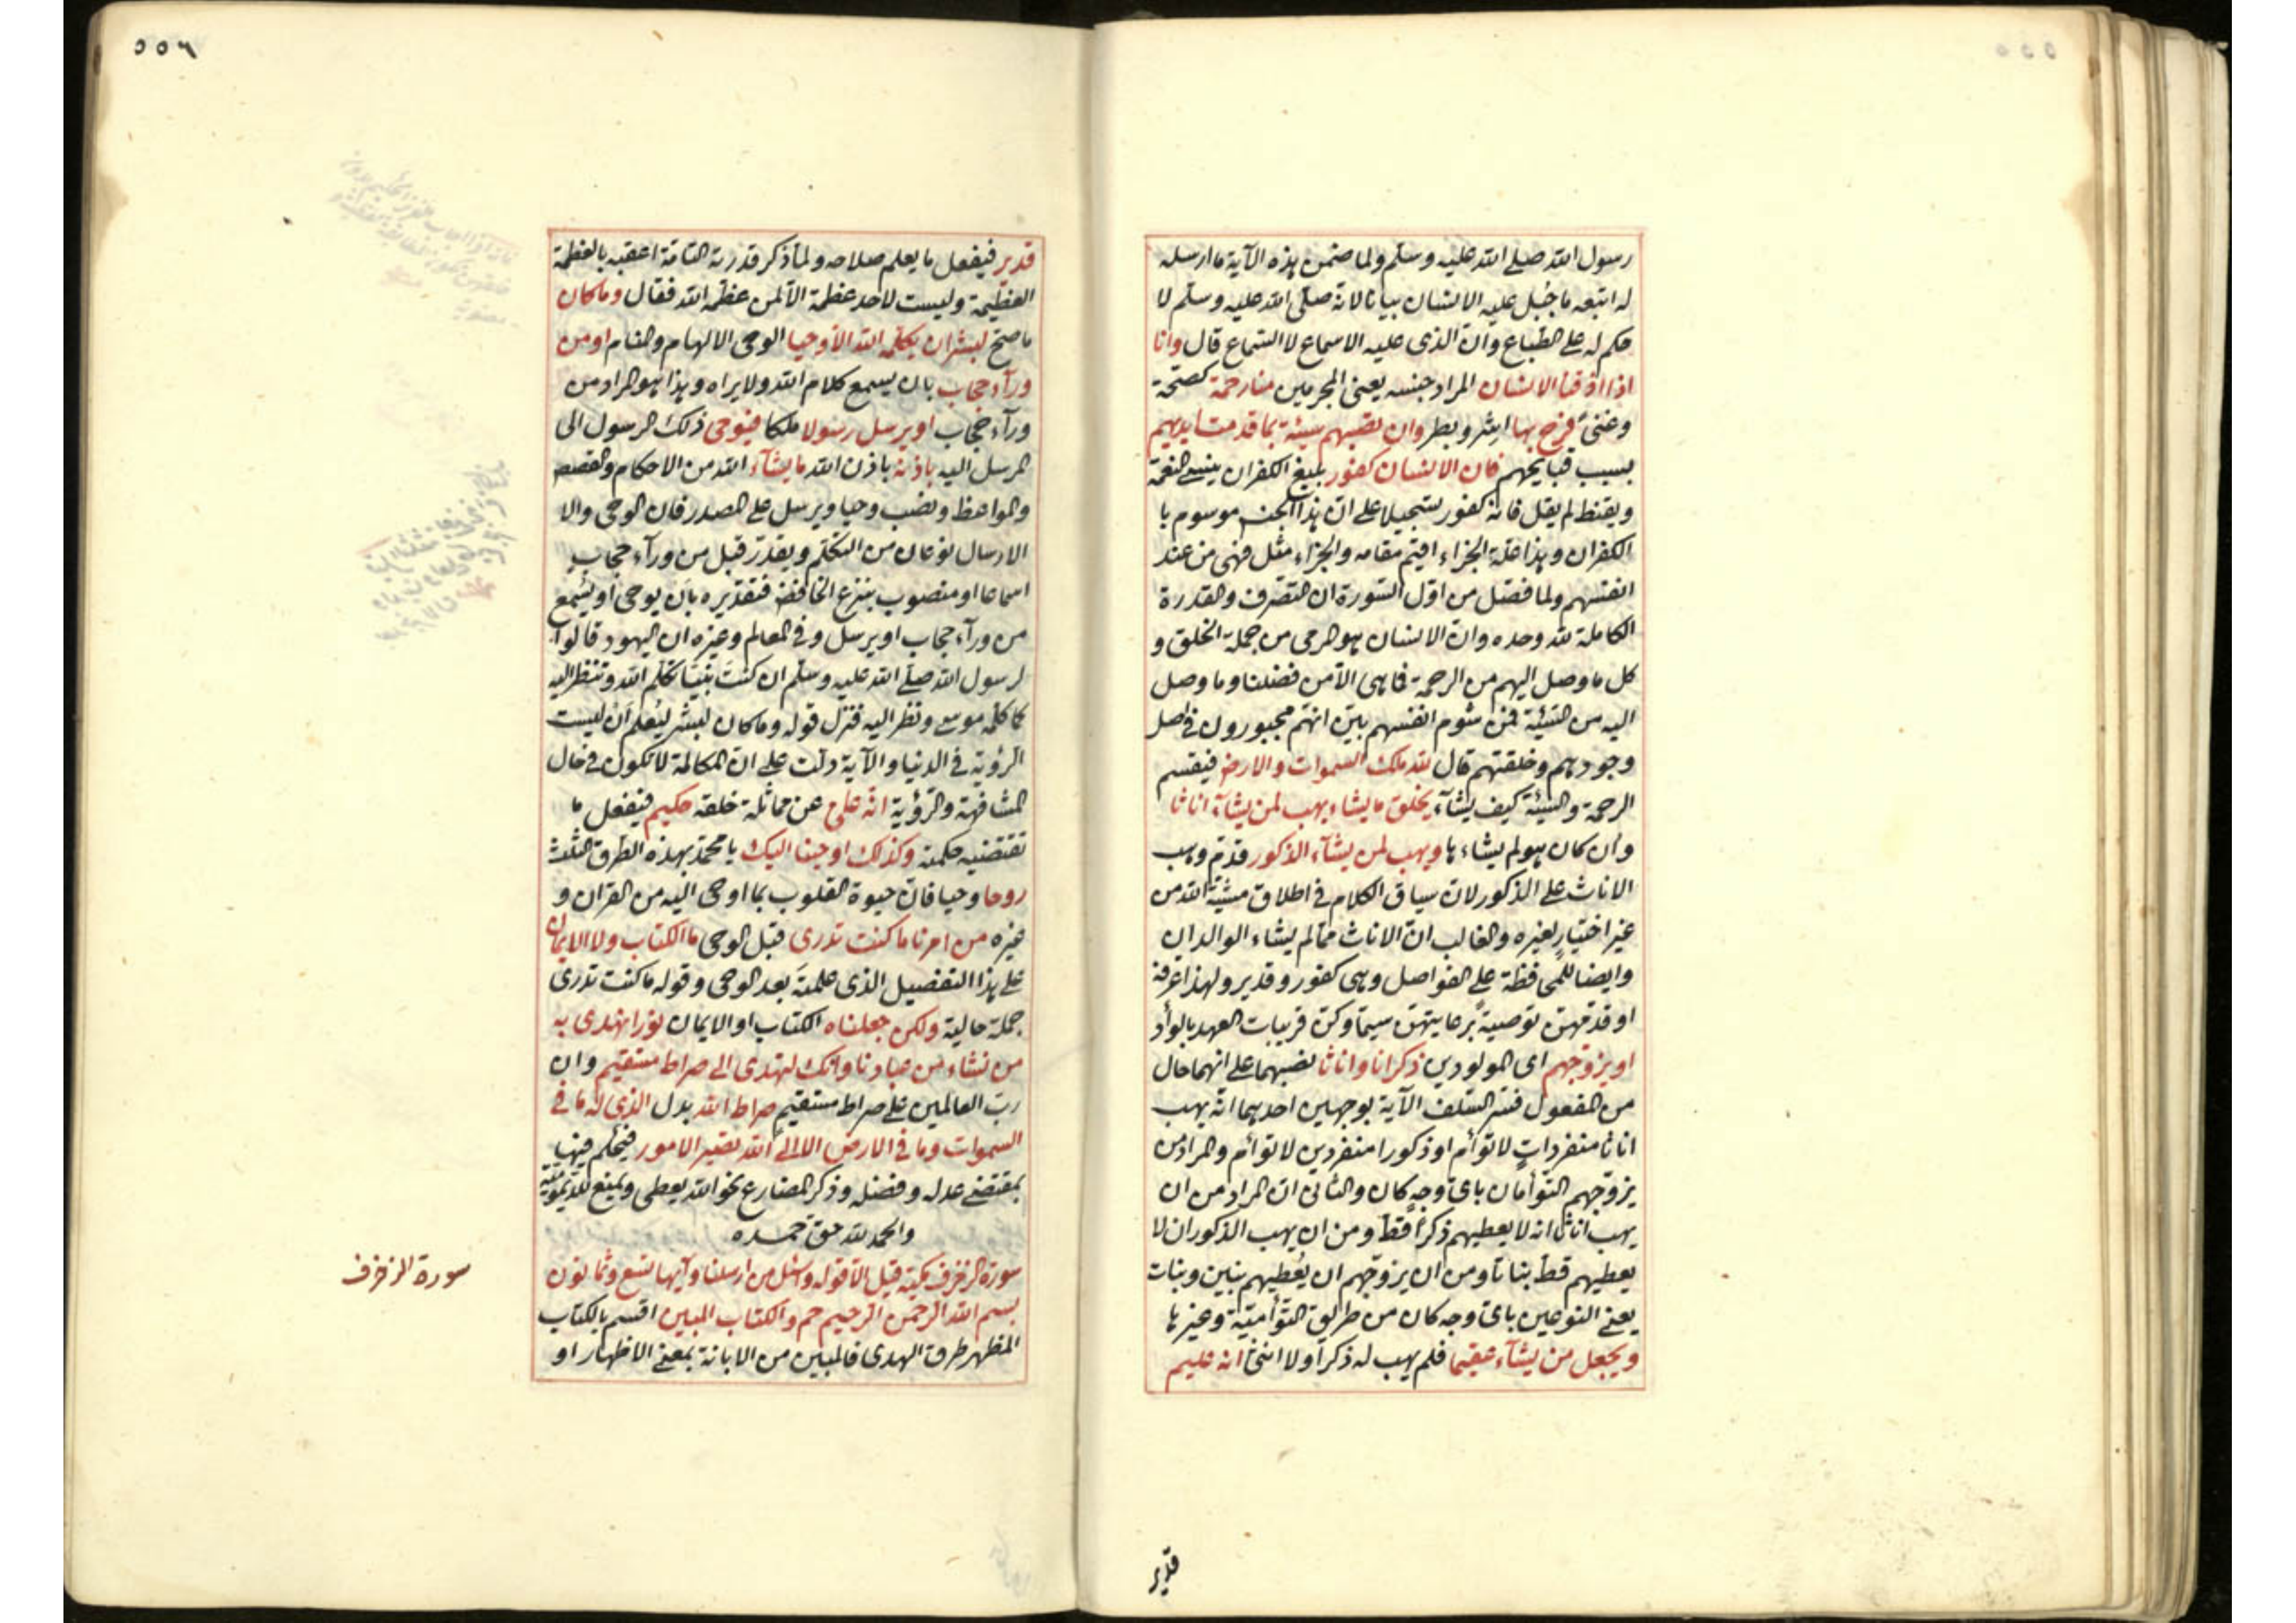 رسول الله صلى الله عليه وسلم ولما ضمن هذه الآية ما ارسله
له اتبعه ما جُبل عليه الانسان بيانا لانه صلى الله عليه وسلم لا
حكم له على الطباع وان الذى عليه الاسماع لا السماع قال وانا
اذا اذقنا الانسان المراد جنسه يعنى المجرمين منا رحمة كصحة
وغنىً فرح بها اشر وبطر وان تصبهم سيئة بما قدمت ايديهم
بسبب قبايحهم فان الانسان كفور بليغ الكفران ينسى النعمة
ويقنط لم يقل فانه كفور تسجيلا على ان هذا الجنس موسوم با
الكفران وهذا علة الجزاء اقيم مقامه والجزاء مثل فهى من عند
انفسهم ولما فصّل من اوّل السّورة ان التصّرف والقدرة
الكاملة لله وحده وان الانسان هو المرمى من جملة الخلق و
كل ما وصل اليهم من الرحمة فما هى الا من فضلنا وما وصل
اليه من السّيئة فمن شوم انفسهم بيّن انهّم مجبورون فى اصل
وجودهم وخلقتهم قال لله ملك السموات والارض فيقسم
الرحمة والسيئة كيف يشآء يخلق ما يشاء يهب لمن يشآء اناثا
وان كان هو لم يشاءها ويهب لمن يشآء الذكور قدّم وهب
الاناث على الذكور لان سياق الكلام فى اطلاق مشيّة الله من
غير اختيار لغيره والغالب ان الاناث مما لم يشاء الوالدان
وايضا للمحافظة على الفواصل وهى كفور وقدير ولهذا عرفه
او قدمهنّ توصيةً برعايتهنّ سيّما وكنّ قريبات العهد بالوأد
او يزوجهم اى المولودين ذكرانا واناثا نصبهما على انهما حال
من المفعول فسّر السّلف الآية بوجهين احدهما انّه يهب
اناثا منفرداتٍ لا توأم او ذكورا منفردين لا توأم والمراد من
يزوّجهم التوأمان باىّ وجهٍ كان والثانى ان المراد من ان
يهب اناثا انه لا يعطيهم ذكراً قط ومن ان يهب الذكور ان لا
يعطيهم قطّ بناتا ومن ان يزوّجهم ان يُعطيهم بنين وبنات
يعنى النوعين باىّ وجه كان من طريق التوأمّية وغيرها
ويجعل من يشآء عقيما فلم يهب له ذكراً ولا انثى انه عليم
قدير
٥٥٦
قدير فيفعل ما يعلم صلاحه ولما ذكر قدرته التامّة اعقبه بالعظمة
العظيمة وليست لاحد عظمة الّا لمن عظّمه الله فقال وما كان
ما صحّ لبشر ان يكلّمه الله الّا وحيا الوحى الالهام والمنام او من
ورآء حجاب بان يسمع كلام الله ولا يراه وهذا هو المراد من
ورآء حجاب او يرسل رسولا ملكا فيوحى ذلك الرسول الى
المرسل اليه باذنه باذن الله ما يشآء الله من الاحكام والقصص
والمواعظ ونصب وحيا ويرسل على المصدر فان الوحى والا
الارسال نوعان من التكلّم ويقدّر قبل من ورآء حجاب
اسماعا او منصوب بنزع الخافض فتقديره بان يوحى او يسمع
من ورآء حجاب او يرسل وفى المعالم وغيره ان اليهود قالوا
لرسول الله صلى الله عليه وسلّم ان كنتَ نبيّا تكلّم الله وتنظر اليه
كما كلّمه موسى ونظر اليه فنزل قوله وما كان لبشر ليُعلم ان ليست
الرؤية فى الدنيا والآية دلّت على ان المكالمة لا تكون فى حال
المشافهة والرؤية انّه علىّ عن مماثلة خلقه حكيم فيفعل ما
تقتضيه حكمته وكذلك اوحينا اليك يا محمّد بهذه الطرق الثلث
روحا وحيا فان حيوة القلوب بما اوحى اليه من القران و
غيره من امرنا ما كنت تدرى قبل الوحى ما الكتاب ولا الايمان
على هذا التفصيل الذى علمتَه بعد الوحى وقوله ما كنت تدرى
جملة حالية ولكن جعلناه الكتاب او الايمان نورا نهدى به
من نشاء من عبادنا وانك لتهدى الى صراط مستقيم وان
ربّ العالمين على صراط مستقيم صراط الله بدل الذى له ما فى
السموات وما فى الارض الا الى الله تصير الامور فيحكم فيها
بمقتضى عدله وفضله وذكر المضارع نحو الله يعطى ويمنع للديمومية
والحمد لله حق حمده
سورة الزخرف مكية قيل الّا قوله واسئل من ارسلنا وآيها تسع وثمانون
بسم الله الرحمن الرحيم حم والكتاب المبين اقسم بالكتاب
المظهر طرق الهدى فالمبين من الابانة بمعنى الاظهار او
سورة الزخرف